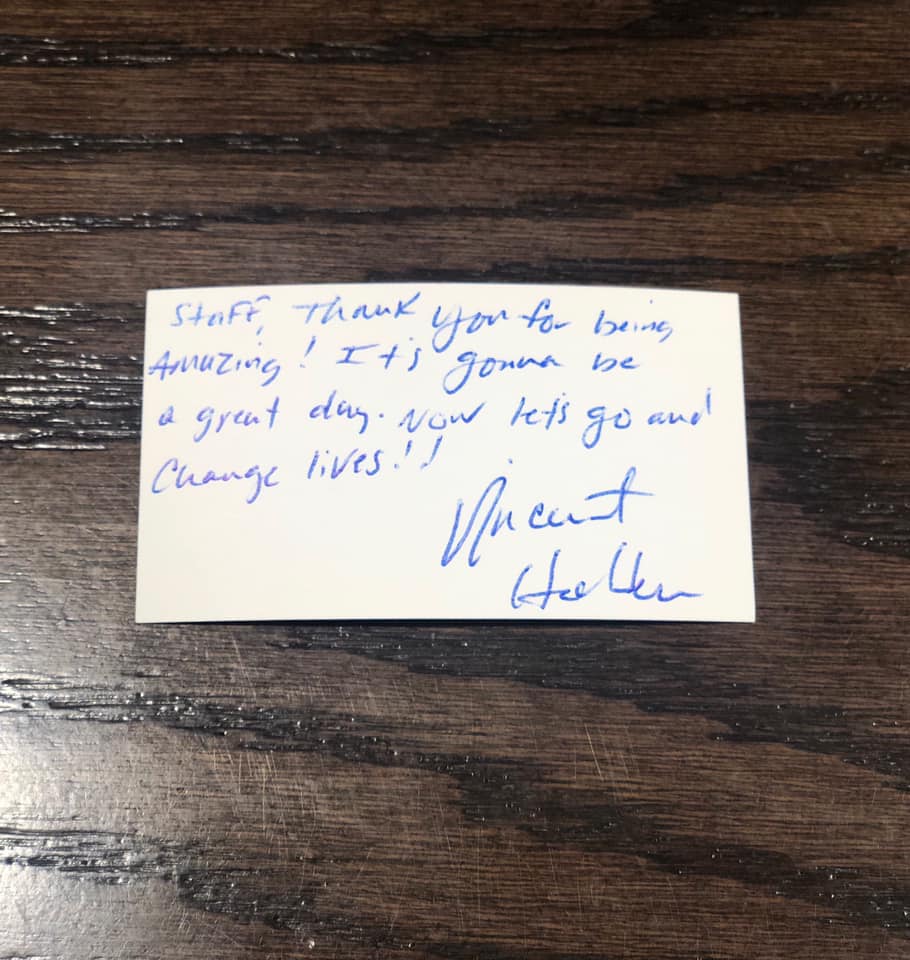 Staff, Thank you for being
Amazing! It's gonna be
a great day. Now let's go and
Change lives!!
Vincent